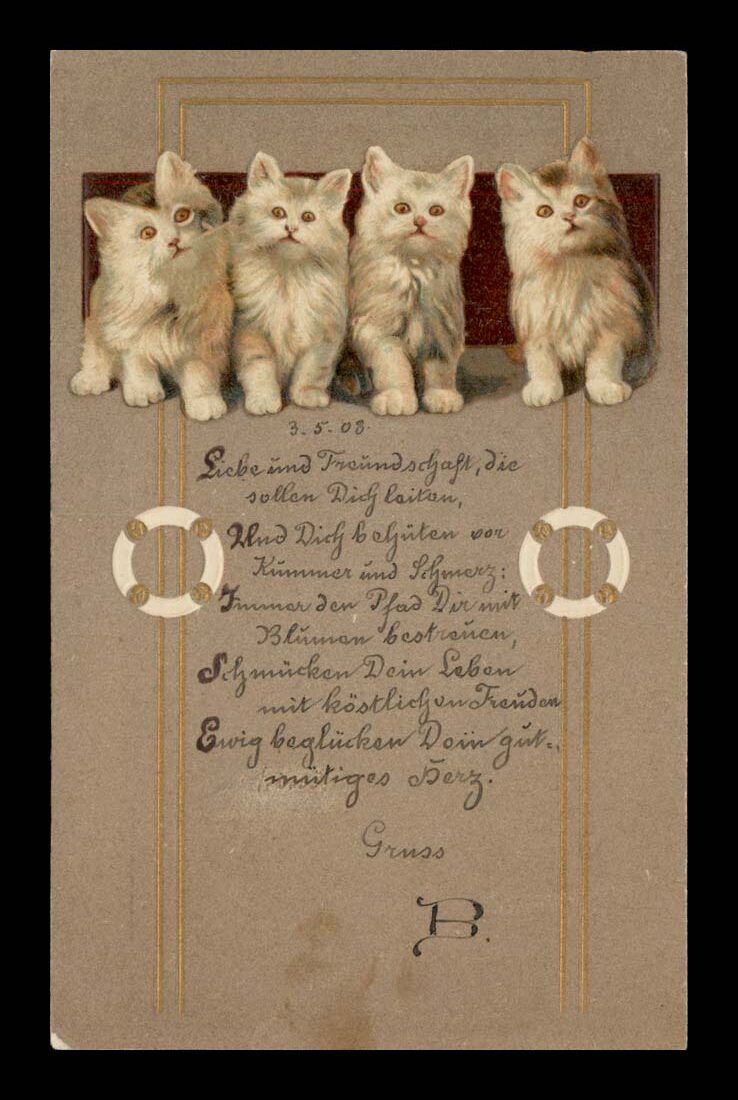 3.-5.-03.
Liebe und Freundschaft, die
sollen Dich leiten,
Und Dich behüten vor
Kummer und Schmerz:
Immer den Pfad Dir mit
Blumen bestreuen,
Schmücken Dein Leben
mit köstlichen Freuden
Ewig beglücken Dein gut=
mütiges Herz.
Gruss
B.